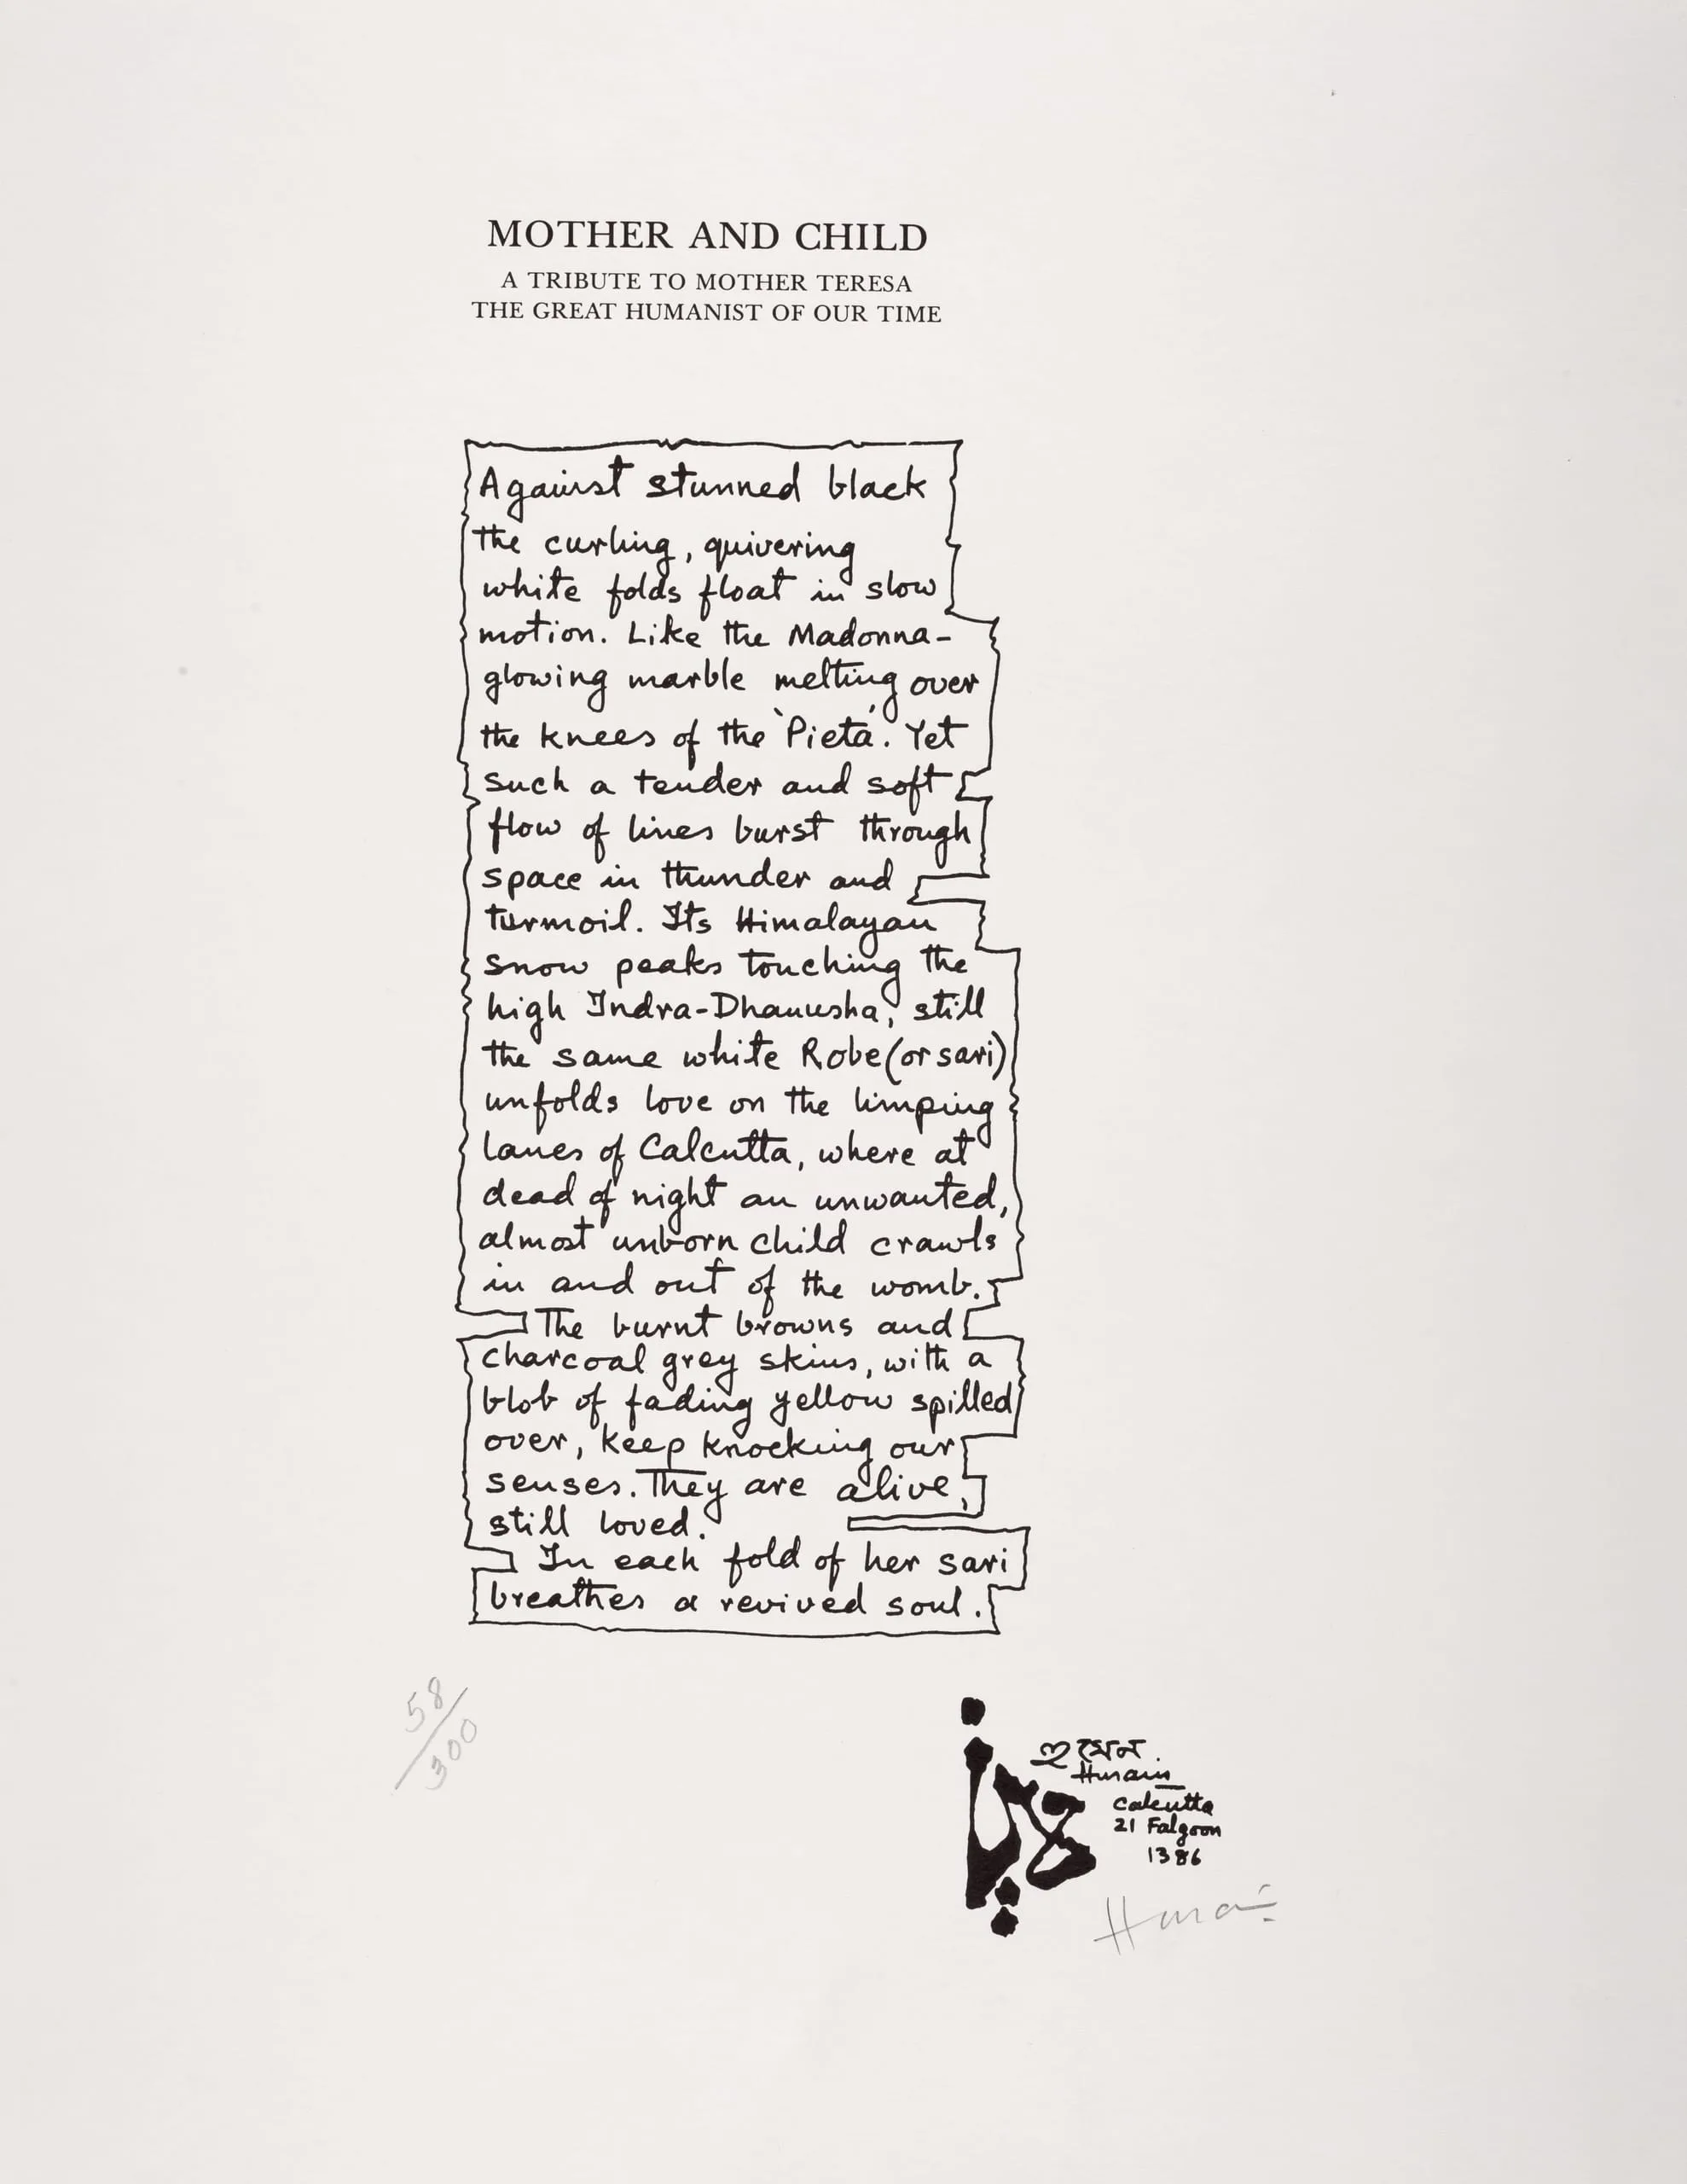 MOTHER AND CHILD
A TRIBUTE TO MOTHER TERESA
THE GREAT HUMANIST OF OUR TIME
Against stunned black
the curling, quivering
white folds float in slow
motion. Like the Madonna-
glowing marble melting over
the knees of the 'Pieta'. Yet
such a tender and soft
flow of lines burst through
space in thunder and
turmoil. Its Himalayan
snow peaks touching the
high Indra-Dhanusha, still
the same white Robe (or sari)
unfolds love on the limping
lanes of Calcutta, where at
dead of night an unwanted,
almost unborn child crawls
in and out of the womb.
The burnt browns and
charcoal grey skins, with a
blob of fading yellow spilled
over, keep knocking our
senses. They are alive,
still loved.
In each fold of her sari
breathes a revived soul.
58/300
Husain
Calcutta
21 Falgoon
1386
Husain